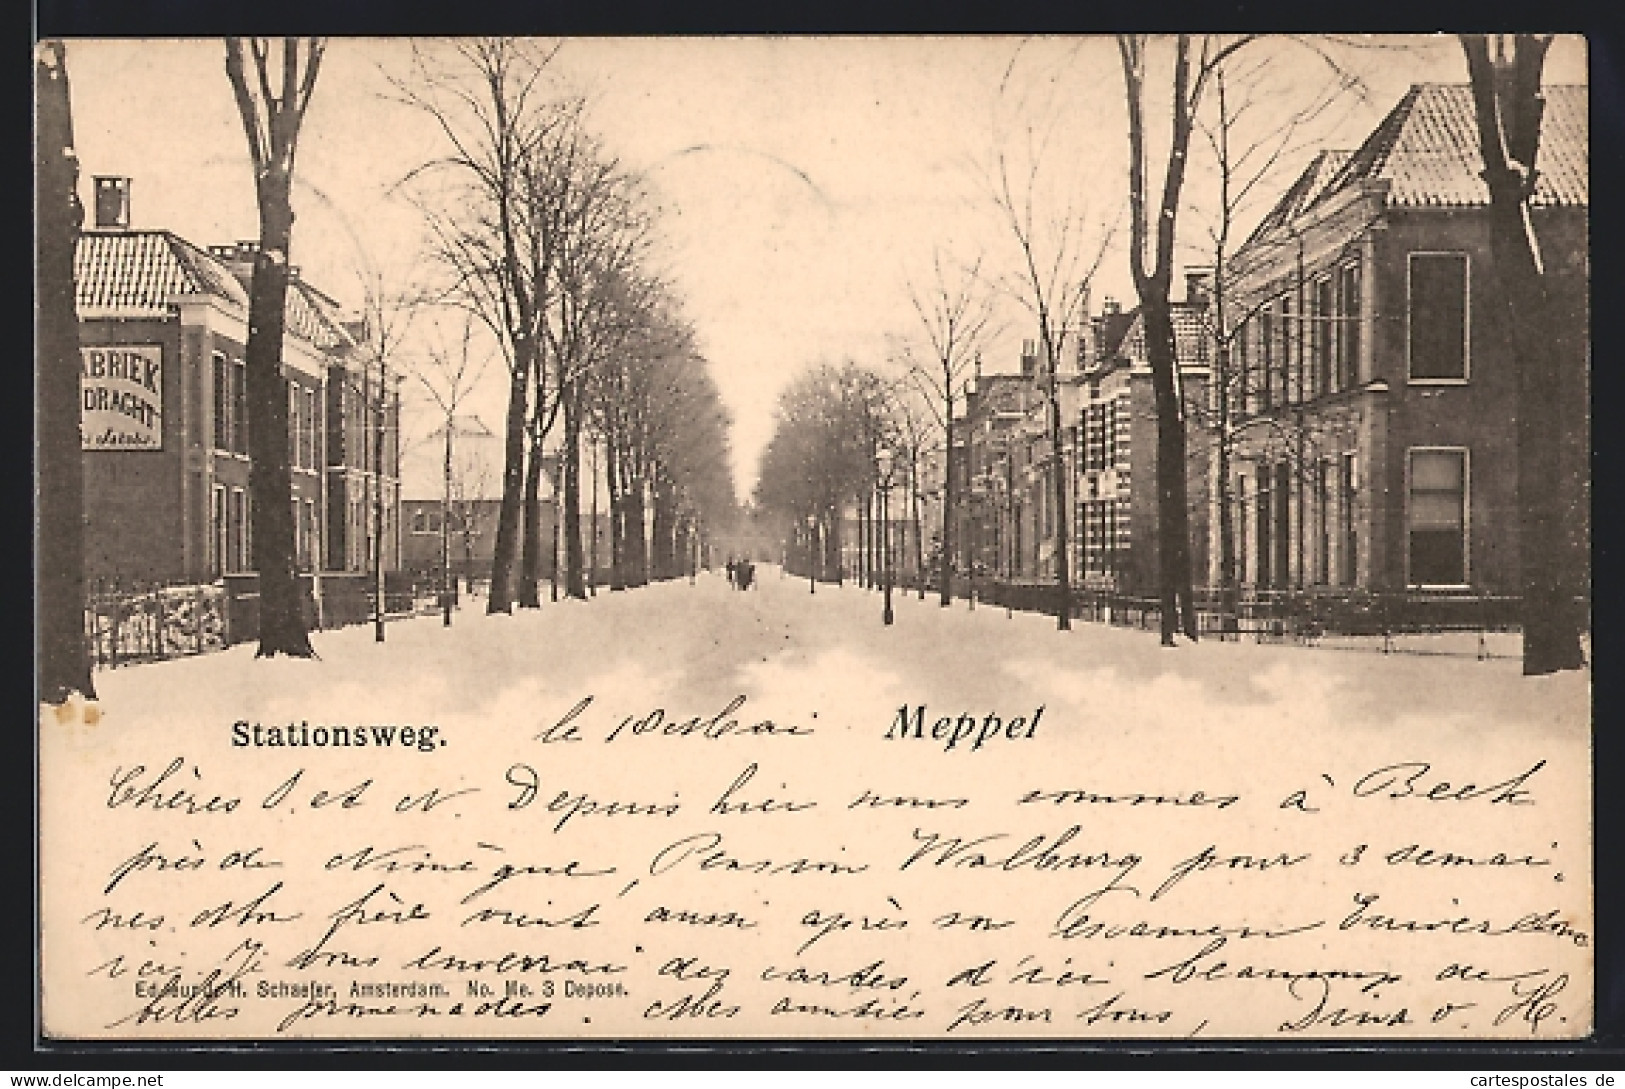 ABRIEK
DRAGHT
Stationsweg. le 18 Mai Meppel
Chères J. et N. Depuis hier nous sommes à Beek
près de Nimègue, Pension Walburg pour 3 semai-
nes. Mon frère vient aussi après son examen Ecrivez donc
ici. Je vous enverrai des cartes d'ici beaucoup de
Editeur H. Schaefer, Amsterdam. No. Me. 3 Depose.
belles promenades. Mes amitiés pour tous, Dina v. H.
cartespostales de